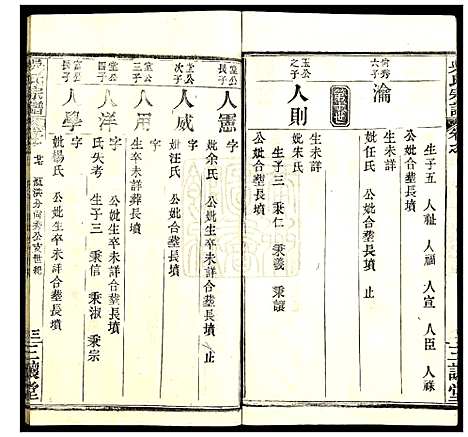 生子五 人祉 人福 人宣 人臣 人祿
公妣合葬長墳
尚秀
六子
淪
生未詳
妣任氏 公妣合葬長墳 止
玉公
之子
人則
生未詳
妣朱氏
生子三 秉仁 秉義 秉讓
公妣合葬長墳
堂公
長子
人憲
字
妣余氏 公妣生卒未詳合葬長墳 止
堂公
次子
人威
字
妣汪氏 公妣生卒未詳合葬長墳
堂公
三子
人用
字
生卒未詳葬長墳
堂公
四子
人洋
字
氏失考 公妣生卒未詳合葬長墳
生子三 秉信 秉淑 秉宗
富公
長子
人學
字
妣楊氏 公妣生卒未詳合葬長墳
吳氏宗譜
三讓堂